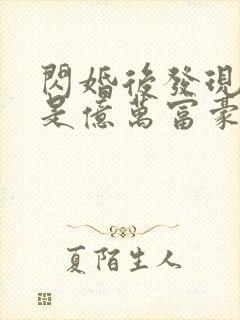 閃婚後發現
是億萬富豪
夏陌生人